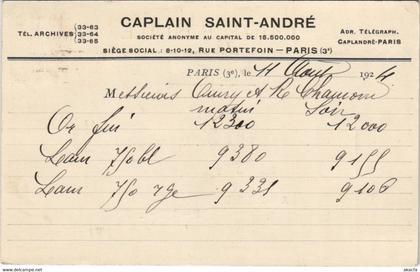 CAPLAIN SAINT-ANDRÉ
TÉL. ARCHIVES {33-63
33-64
33-65
SOCIÉTÉ ANONYME AU CAPITAL DE 15.500.000
ADR. TÉLÉGRAPH.
CAPLANDRÉ-PARIS
SIÈGE SOCIAL : 8-10-12, RUE PORTEFOIN — PARIS (3e)
PARIS (3e), le 11 Août 1924
Messieurs
matin Soir
Or fin 12300 12000
750 9380 9155
750 9331 9106